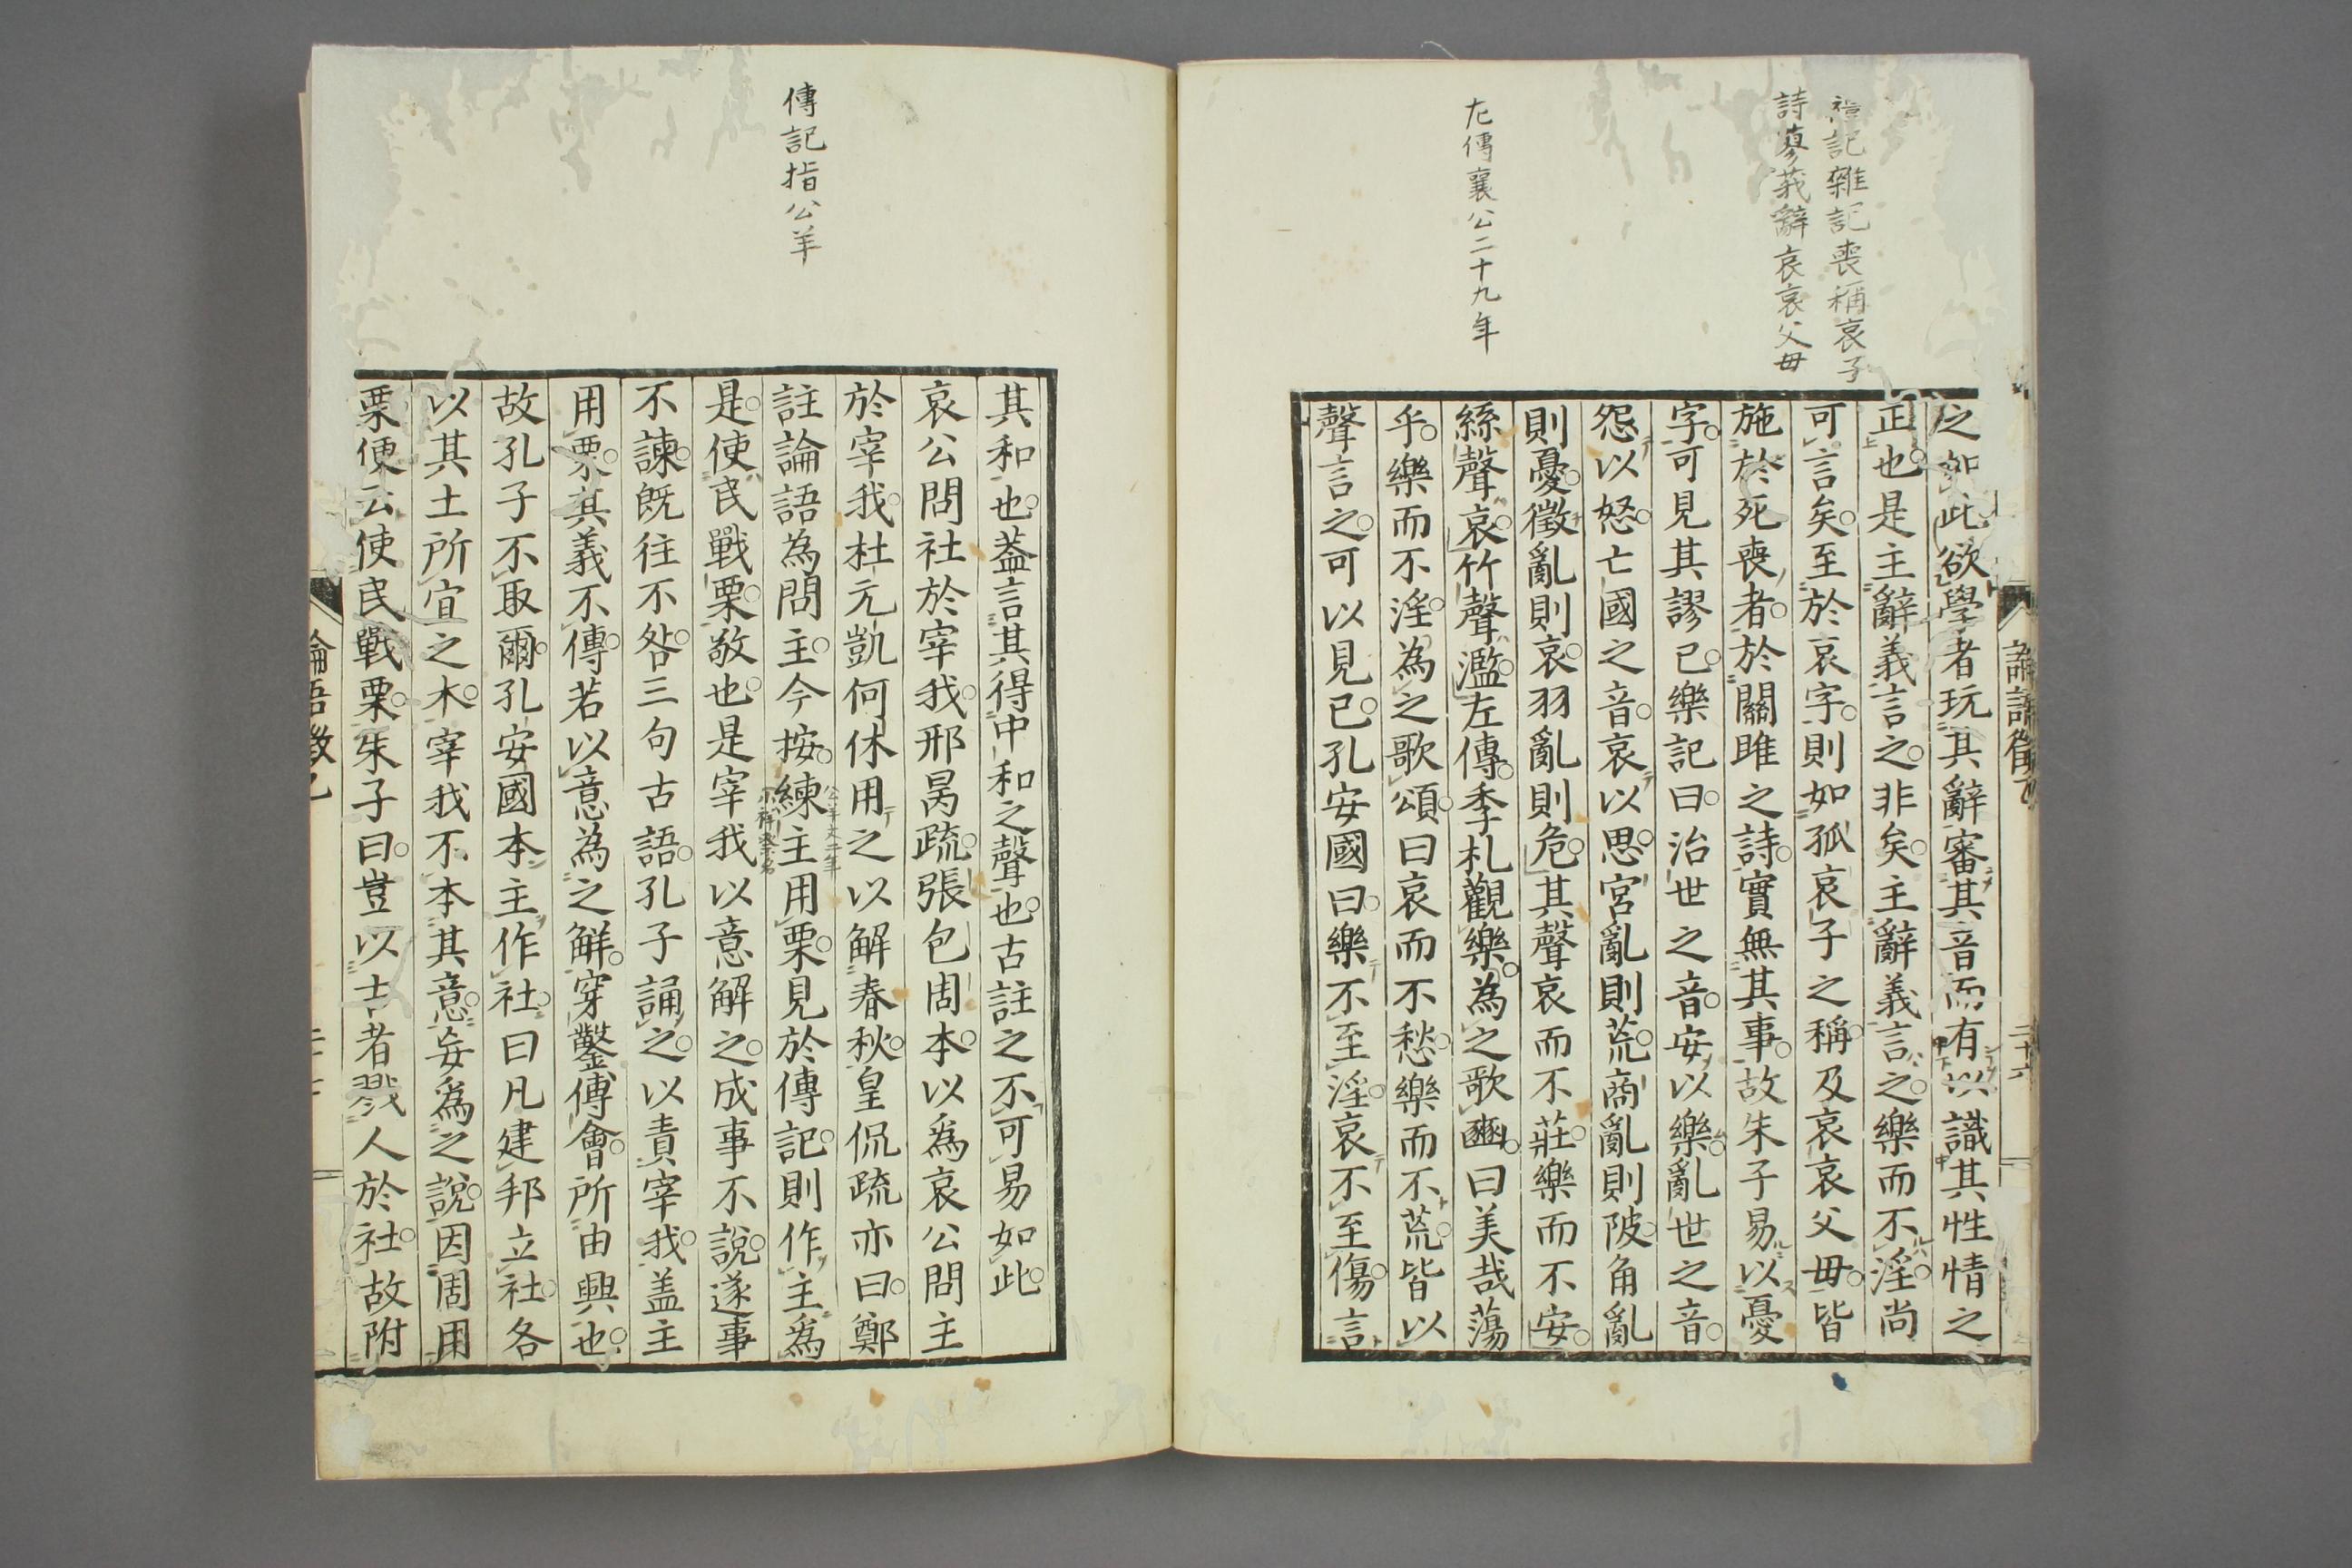 禮記雜記喪稱哀子
詩蓼莪辭哀哀父毋
左傳襄公二十九年
二十六
之如此欲學者玩其辭審其音而有以識其性情之
正也是主辭義言之非矣主辭義言之樂而不淫尚
可言矣至於哀字則如孤哀子之稱及哀哀父毋皆
施於死喪者於關雎之詩實無其事故朱子易以憂
字可見其謬已樂記曰治世之音安以樂亂世之音
怨以怒亡國之音哀以思宮亂則荒商亂則陂角亂
則憂徵亂則哀羽亂則危其聲哀而不莊樂而不安
絲聲哀竹聲濫左傳季札觀樂為之歌豳曰美哉蕩
乎樂而不淫為之歌頌曰哀而不愁樂而不荒皆以
聲言之可以見已孔安國曰樂不至淫哀不至傷言
傳記指公羊
其和也蓋言其得中和之聲也古註之不可易如此
哀公問社於宰我邢昺疏張包周本以為哀公問主
於宰我杜元凱何休用之以解春秋皇侃疏亦曰鄭
公羊文二年
註論語為問主今按練主用栗見於傳記則作主為
是使民戰栗敬也是宰我以意解之成事不說遂事
不諫既往不咎三句古語孔子誦之以責宰我盖主
用栗其義不傳若以意為之解穿鑿傅會所由興也
故孔子不取爾孔安國本主作社曰凡建邦立社各
以其土所宜之木宰我不本其意妄為之說因周用
栗便云使民戰栗朱子曰豈以古者戮人於社故附
論語徵乙